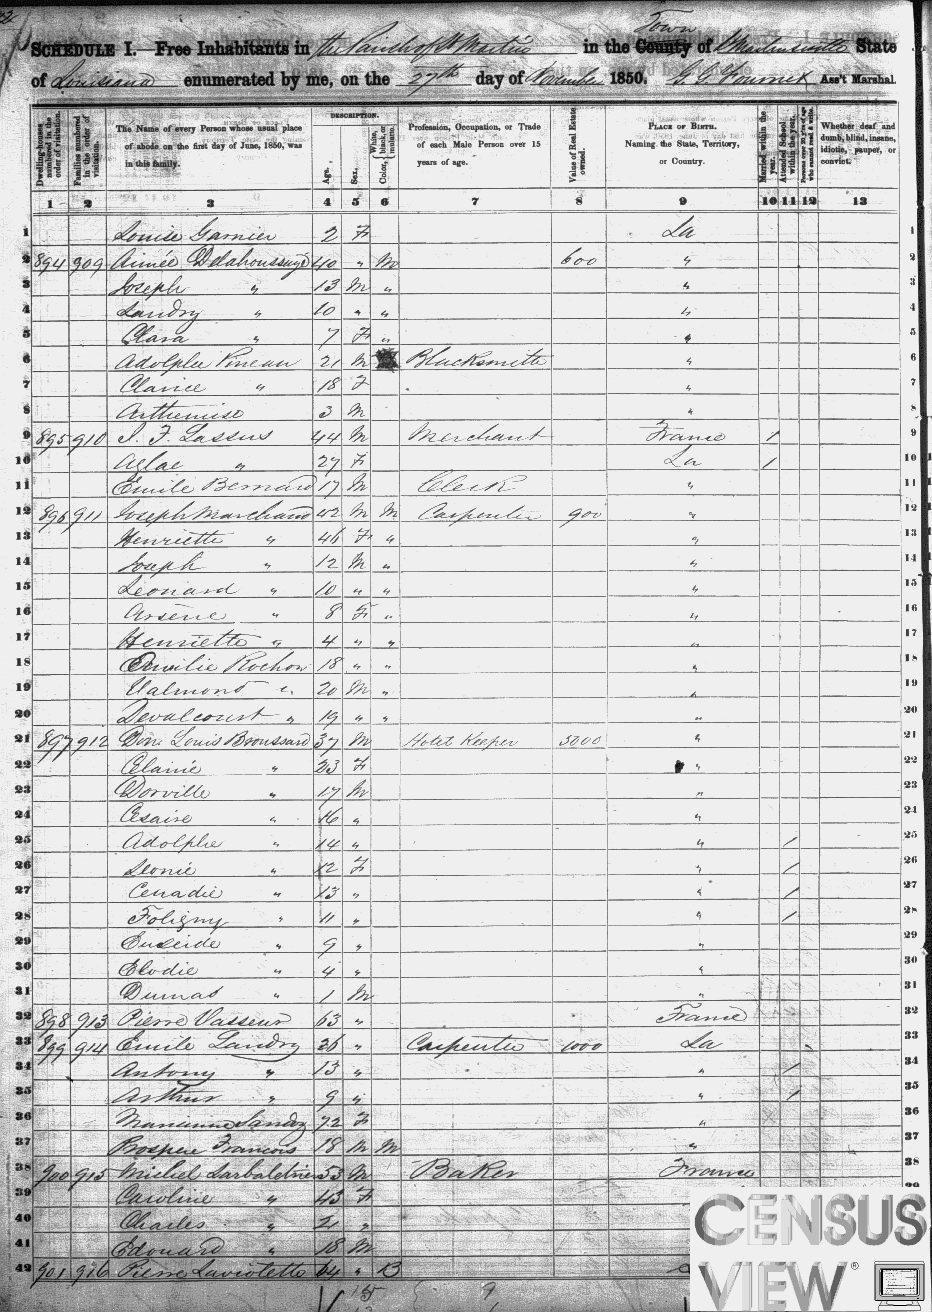 Town
SCHEDULE I. Free Inhabitants in the Parish of St Martin in the County of St Martinsville State
of Louisiana enumerated by me, on the 27th day of November 1850. G G Fournet Ass't Marshal.
Dwelling-houses numbered in the order of visitation.
Families numbered in the order of visitation.
The Name of every Person whose usual place of abode on the first day of June, 1850, was in this family.
DESCRIPTION.
Age.
Sex.
Color, White, black, or mulatto.
Profession, Occupation, or Trade of each Male Person over 15 years of age.
Value of Real Estate owned.
PLACE OF BIRTH. Naming the State, Territory, or Country.
Married within the year.
Attended School within the year.
Persons over 20 y'rs of age who cannot read & write.
Whether deaf and dumb, blind, insane, idiotic, pauper, or convict.
1 2 3 4 5 6 7 8 9 10 11 12 13
1 Louise Garnier 2 F La 1
2 894 909 Aimée Delahoussaye 40 " M 600 " 2
3 Joseph " 13 M " " 3
4 Landry " 10 " " " 4
5 Clara " 7 F " " 5
6 Adolphe Pineau 21 M Blacksmith " 6
7 Clarice " 18 F " 7
8 Arthemise 3 M " 8
9 895 910 J. F. Lassus 44 M Merchant France 1 9
10 Aglae " 27 F La 1 10
11 Emile Bernard 17 M Clerk " 11
12 896 911 Joseph Marchand 42 M M Carpenter 900 " 12
13 Henriette " 46 F " " 13
14 Joseph " 12 M " " 14
15 Leonard " 10 " " " 15
16 Arsène " 8 F " " 16
17 Henriette " 4 " " " 17
18 Emilie Rochon 18 " " " 18
19 Valmond " 20 M " " 19
20 Devalcourt " 19 " " " 20
21 897 912 Don Louis Broussard 37 M Hotel Keeper 5000 " 21
22 Elainé " 23 F " 22
23 Dorville " 17 M " 23
24 Cesaire " 16 " " 24
25 Adolphe " 14 " " 1 25
26 Leonie " 12 F " 1 26
27 Cenadie " 13 " " 1 27
28 Foligny " 11 " " 1 28
29 Euseide " 9 " " 29
30 Elodie " 4 " " 30
31 Dumas " 1 M " 31
32 898 913 Pierre Vasseur 63 " France 32
33 899 914 Emile Landry 26 " Carpenter 1000 La 33
34 Antony " 13 " " 1 34
35 Arthur " 9 " " 1 35
36 Marianne Landry 72 F " 36
37 Prospere Francois 18 M M " 37
38 900 915 Michel Larbaletrier 53 M Baker France 38
39 Caroline " 43 F 39
40 Charles " 21 "
41 Edouard " 18 M
42 901 916 Pierre Laviolette 64 " B
CENSUS VIEW®